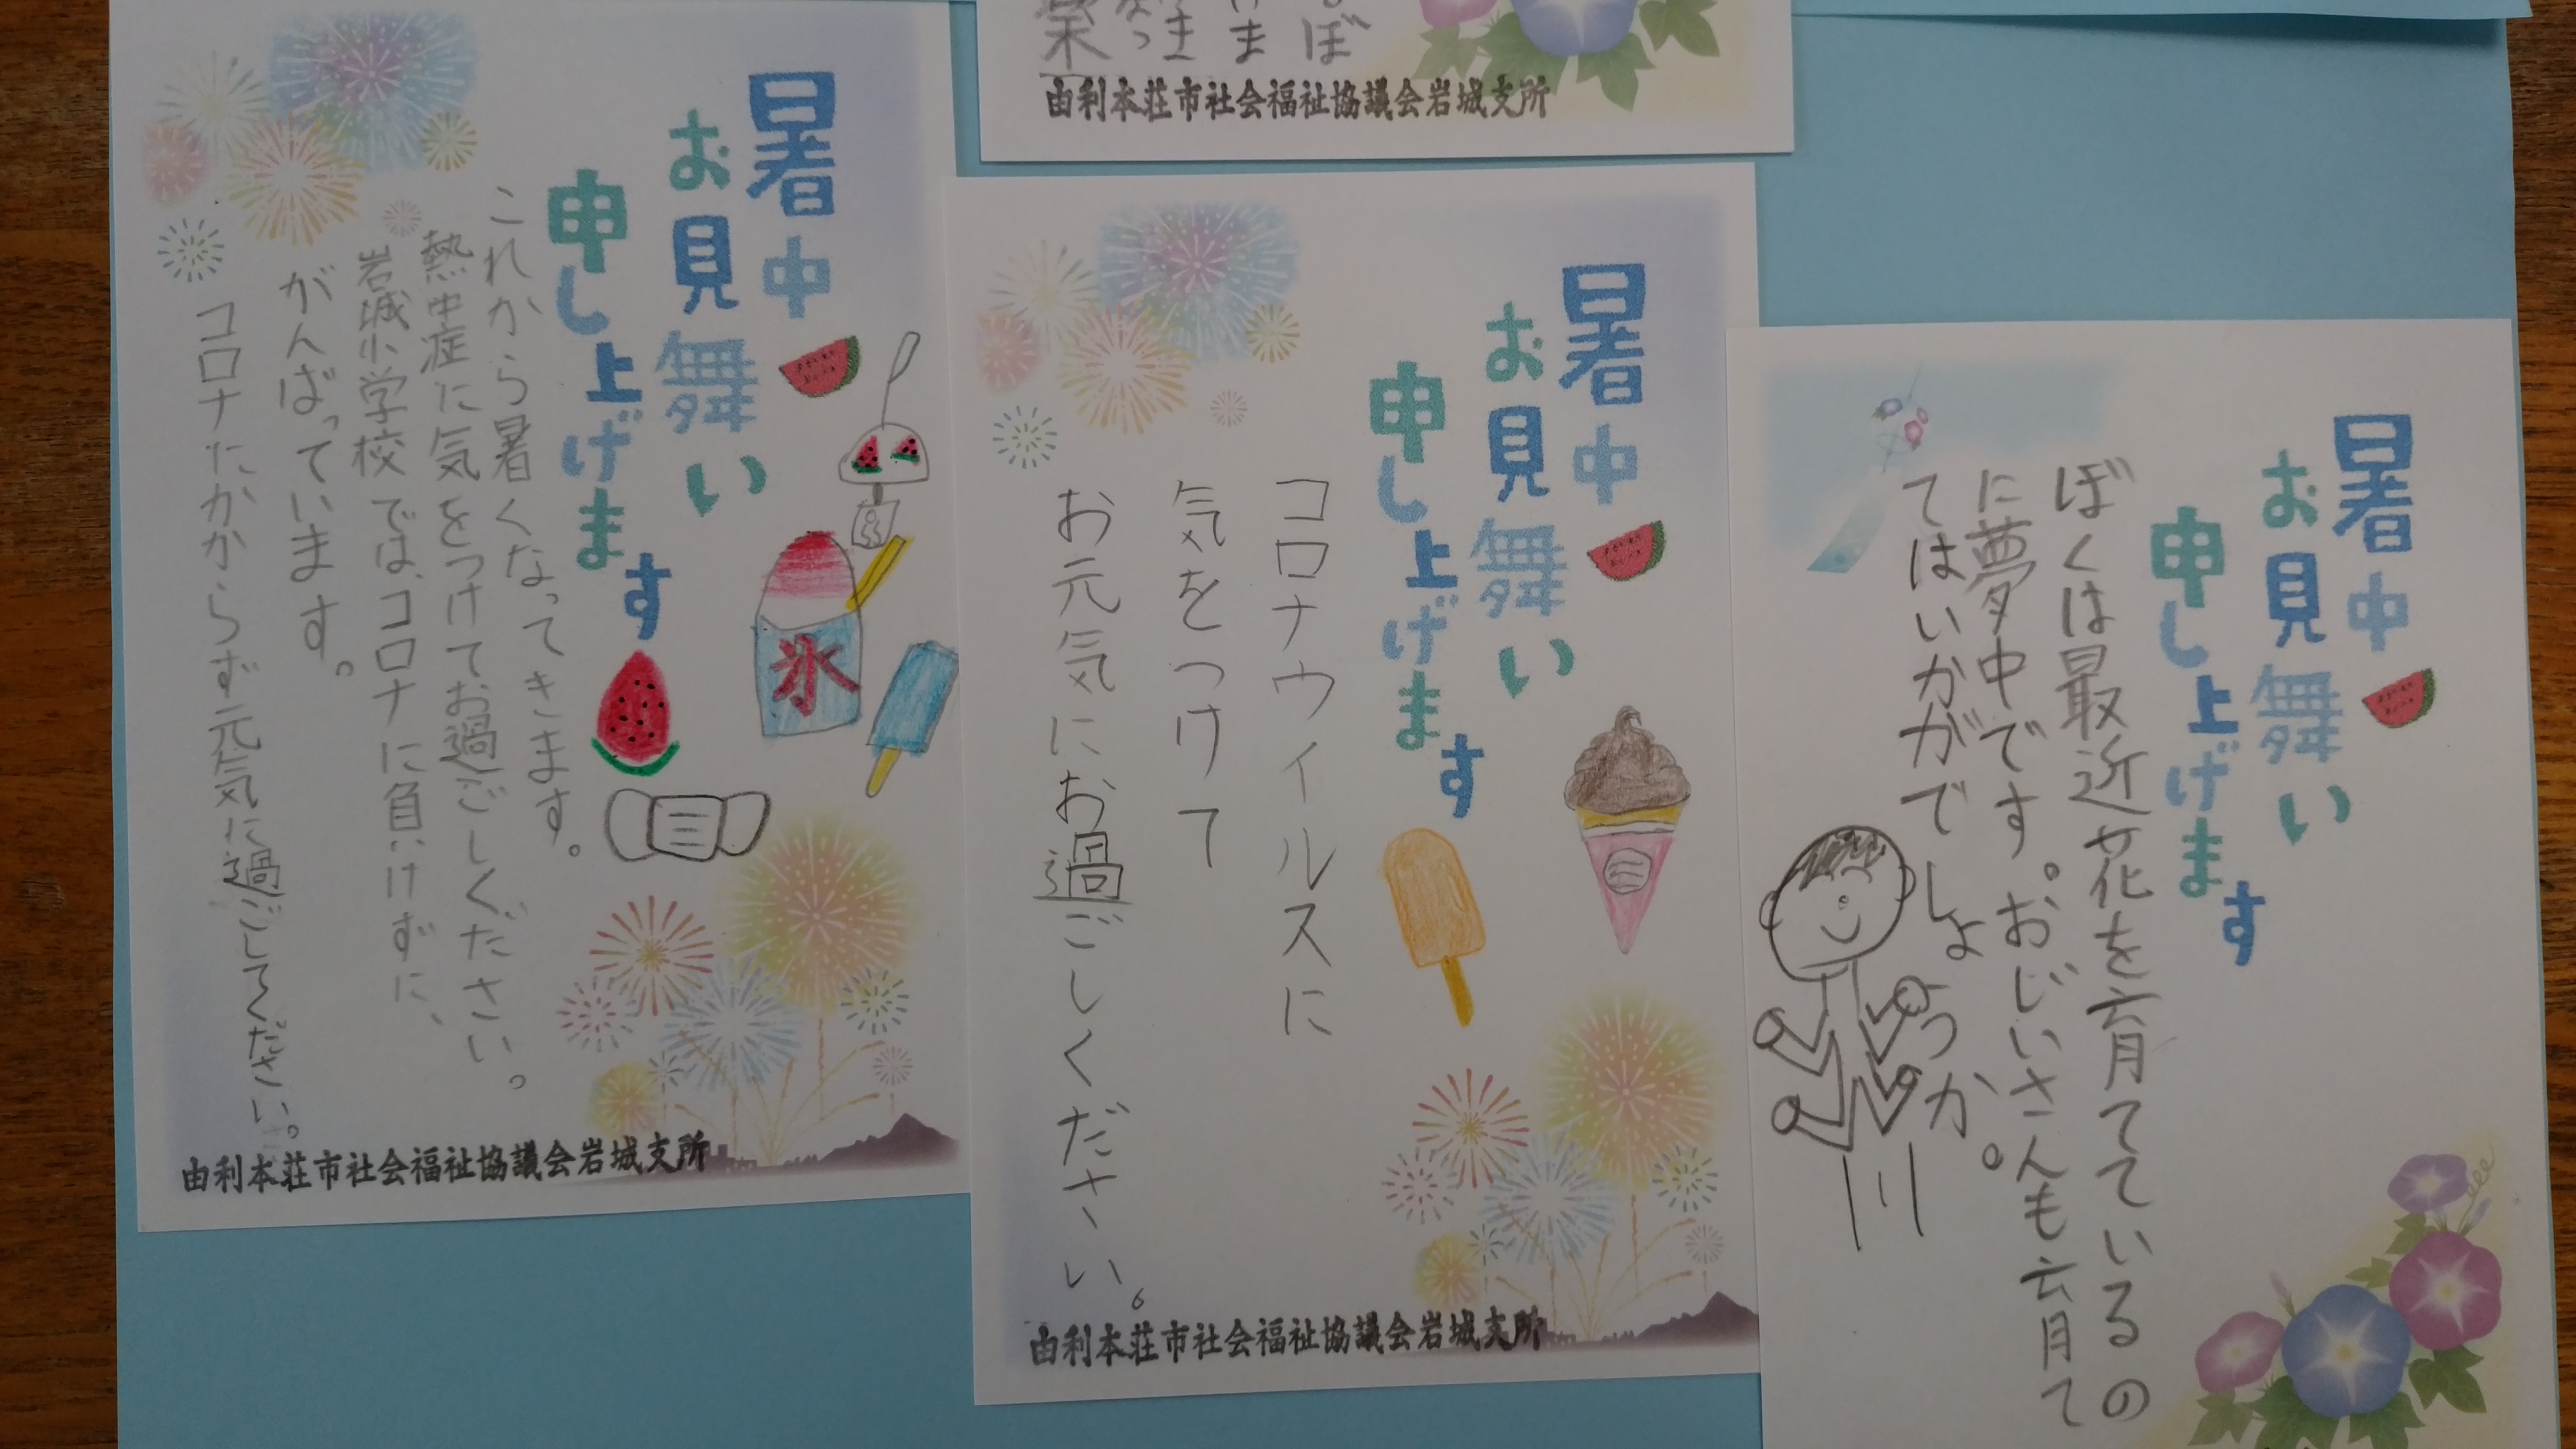 ぼ
ま
由利本荘市社会福祉協議会岩城支所
暑中
お見舞い
申し上げます
これから暑くなってきます。
熱中症に気をつけてお過ごしください。
岩城小学校では、コロナに負けずに、
がんばっています。
コロナにかからず元気に過ごしてください。
氷
由利本荘市社会福祉協議会岩城支所
暑中
お見舞い
申し上げます
コロナウイルスに
気をつけて
お元気にお過ごしください。
由利本荘市社会福祉協議会岩城支所
暑中
お見舞い
申し上げます
ぼくは最近花を育てているの
に夢中です。おじいさんも育て
てはいかがでしょうか。